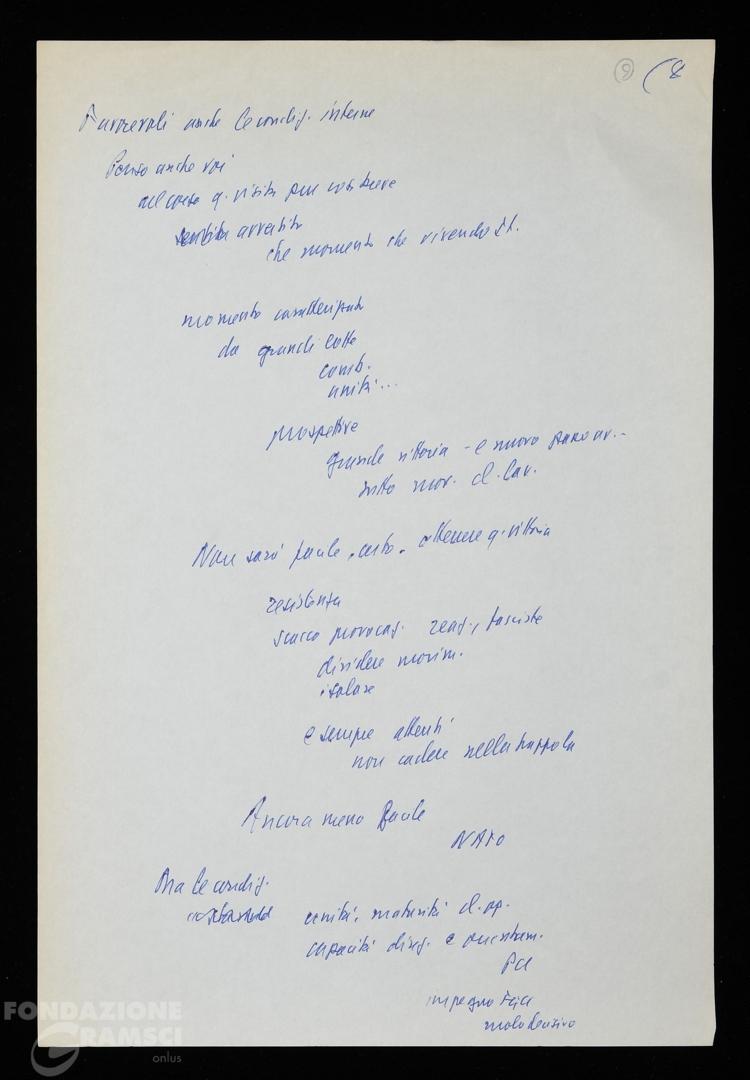 9 (8
Favorevoli anche le condiz. interne
Penso anche voi
nel corso q. visita pur così breve
avvertito
che momento che vivendo It.
momento caratterizzato
da grandi lotte
comb.
unità...
prospettive
grande vittoria - e nuovo passo av.-
tutto mov. d. lav.
Non sarà facile, certo, ottenere q. vittoria
resistenza
scacco provocaz. reaz., fasciste
dividere movim.
isolare
e sempre attenti
non cadere nella trappola
Ancora meno facile
NATO
Ma le condiz.
unità, maturità cl. op.
capacità direz. e orientam.
PCI
impegno FGCI
ruolo decisivo
FONDAZIONE
GRAMSCI
onlus